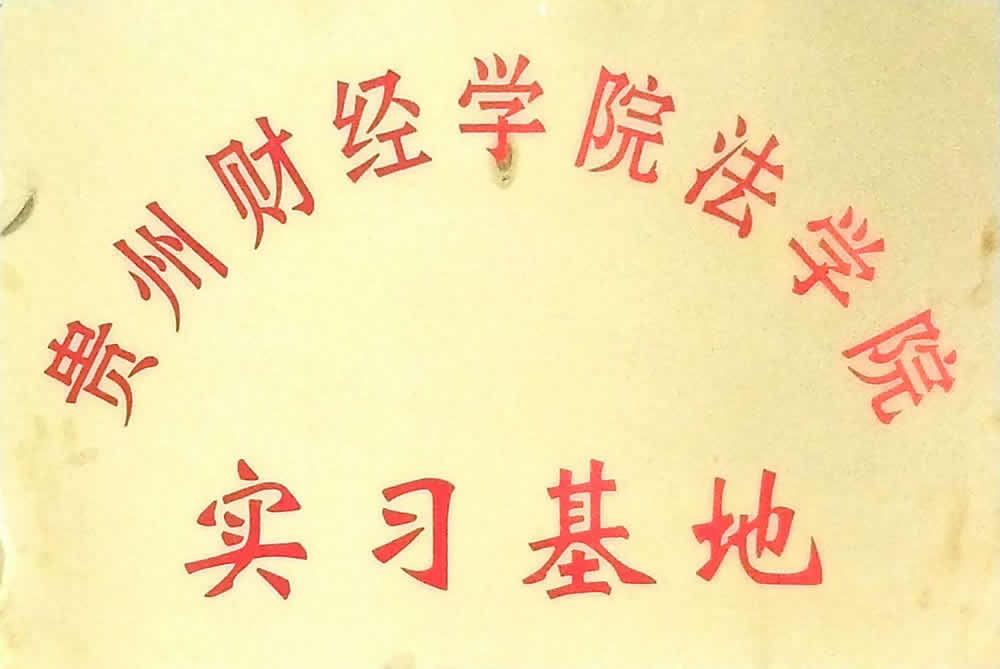 贵州财经学院法学院
实习基地